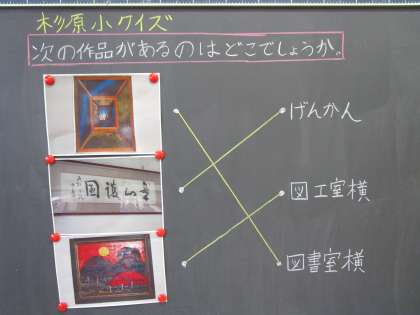 杉原小クイズ
次の作品があるのはどこでしょうか。
げんかん
図工室横
図書室横